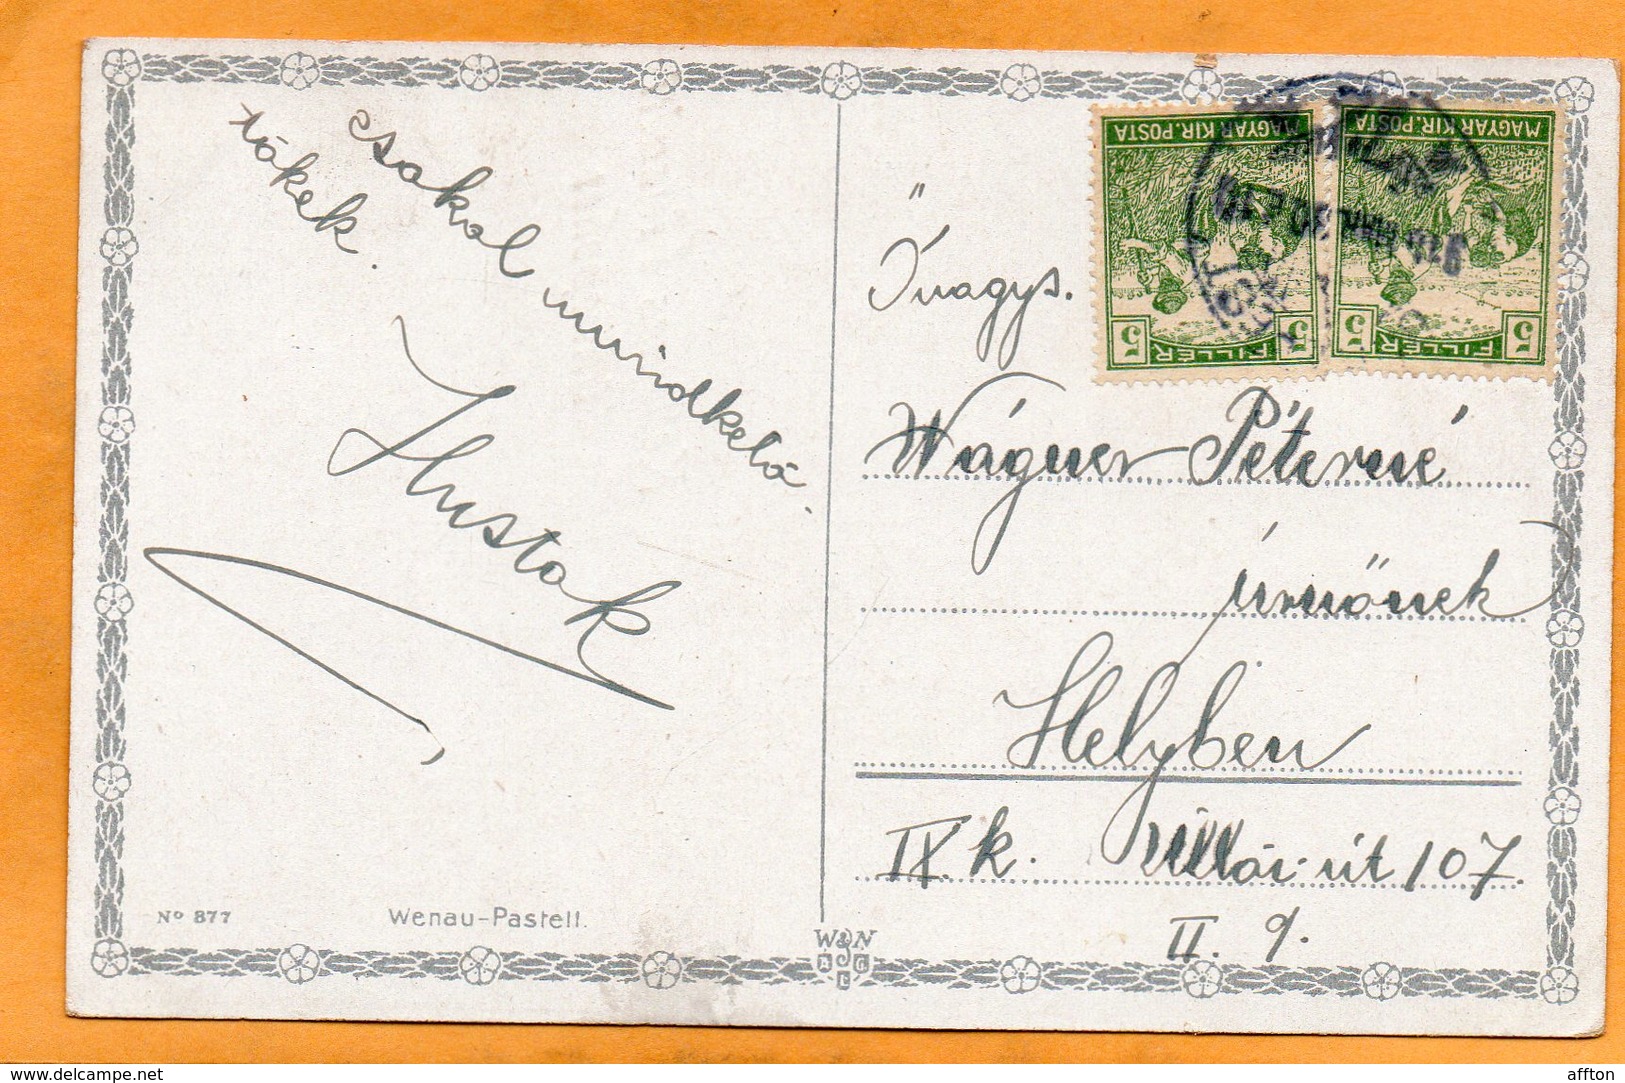 csókol mindkető
tökek.
Hustok
Nº 877
Wenau-Pastell.
W&N
MAGYAR KIR. POSTA
MAGYAR KIR. POSTA
5 FILLÉR 5
5 FILLÉR 5
Őnagys.
Wágner Péterné
úrnőnek
Helyben
IX k. Üllői-út 107.
II. 9.
www.delcampe.net
affton